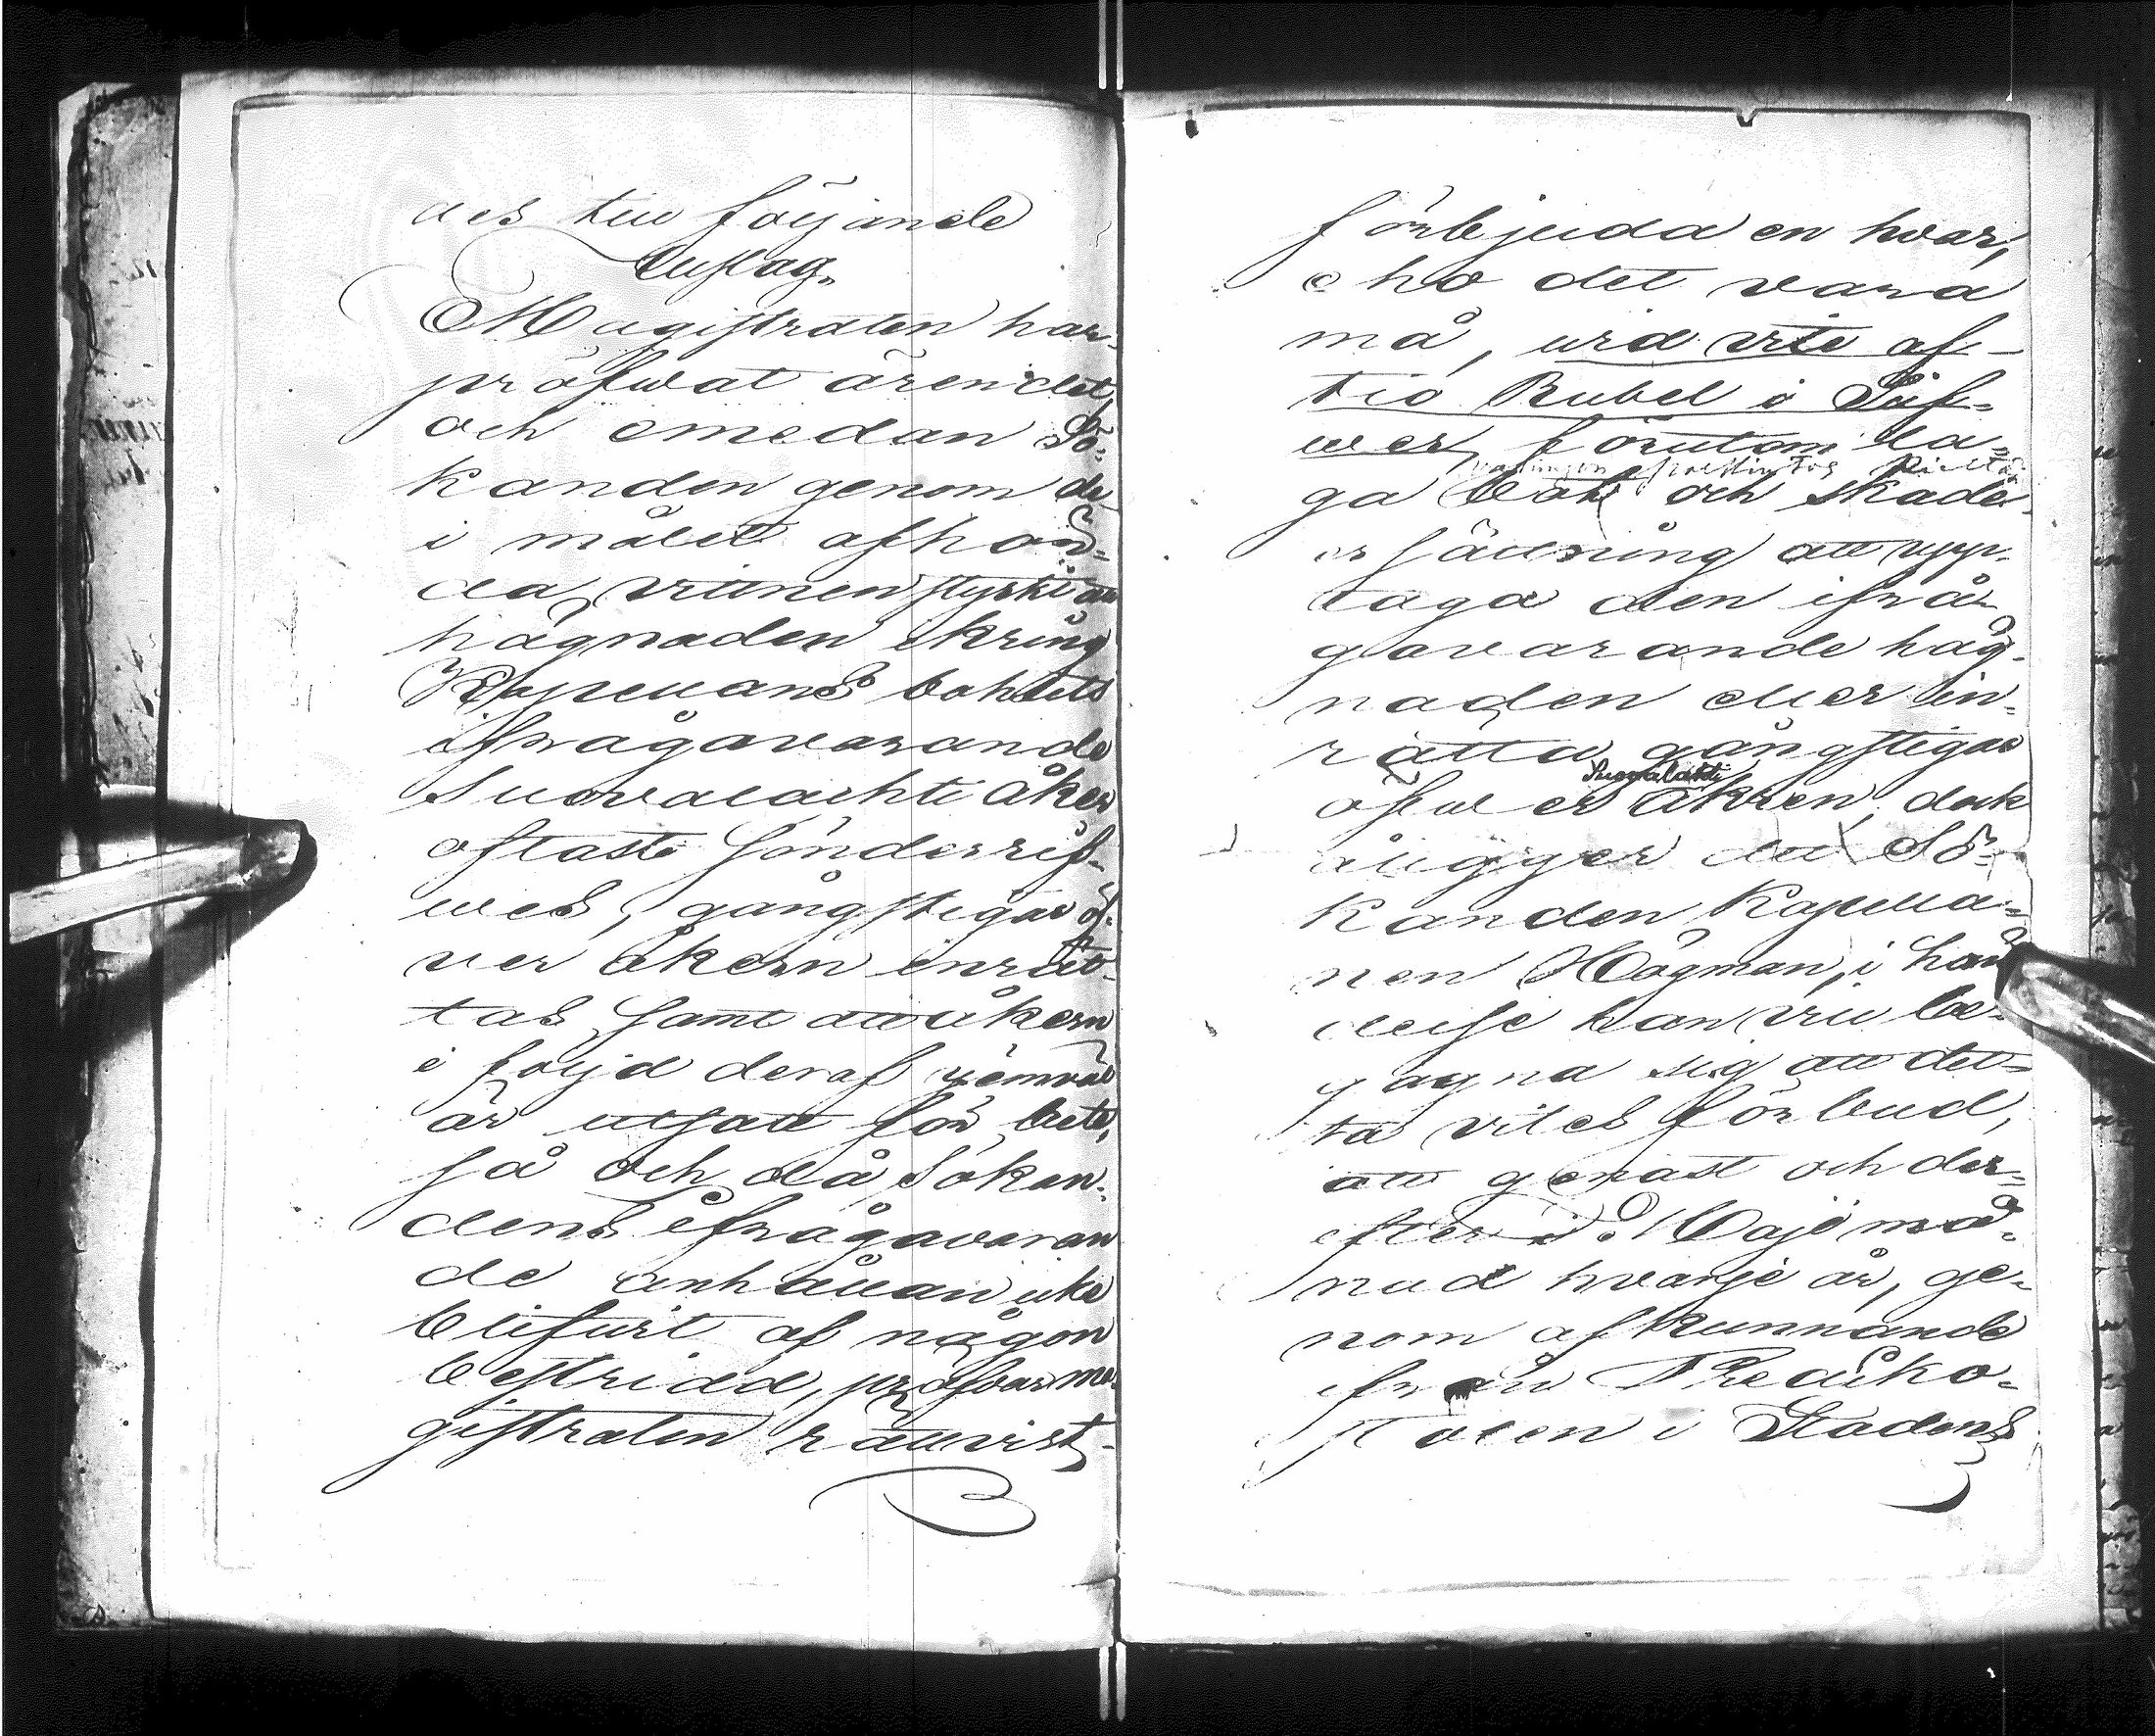 des till föijande
Utslag,
Magistraten har
pröfwat ärendet,
och emedan Sö-
kanden genom de
i målet afhör-
da vittnen styrkt att
hägnaden ikring
Kapellans bohlets
ifrågavarande
Suovalachti åker
oftast sönderrif-
wes, gångstigar öf-
ver åkern inrät-
tas samt att åkern
i följd deraf jemväl
är utsatt för bete,
så och då Sökan-
dens ifrågavaran
de anhållan icke
blifvit af någon
bestridd, pröfvar Ma-
gistraten rättvist
förbjuda en hvar,
eho det vara
må, wid vite af
tio Rubel i Silf-
wer förutom la-
ga bot och skade-
ersättning att upp-
taga den ifrå-
gavarande häg-
naden eller in-
rätta gångstigar
Suovalahti
öfwer åkren, dock
åligger det Sö-
kanden Kapella-
nen Högman, i hän
delse han vill be-
gagna sig att det-
ta vites förbud,
att genast och der-
efter i Maji må-
nad hvarje år, ge-
nom afkunnande
ifrån Prediko-
stolen i Stadens